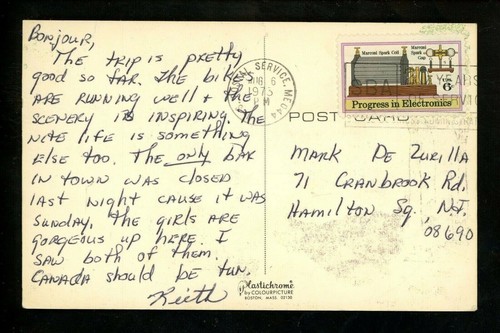 Bonjour,
The trip is pretty
good so far. The bikes
are running well + the
scenery is inspiring. The
nite life is something
else too. The only bar
in town was closed
last night cause it was
Sunday. The girls are
gorgeous up here. I
saw both of them.
Canada should be fun.
Keith
SERVICE, ME 044
AUG 6
1975
PM
Marconi Spark Coil
Marconi Spark Gap
U.S. 6¢
Progress in Electronics
POST CARD
Mark De Zurilla
71 Cranbrook Rd.
Hamilton Sq., N.J.
08690
Plastichrome
by COLOURPICTURE
BOSTON, MASS. 02130